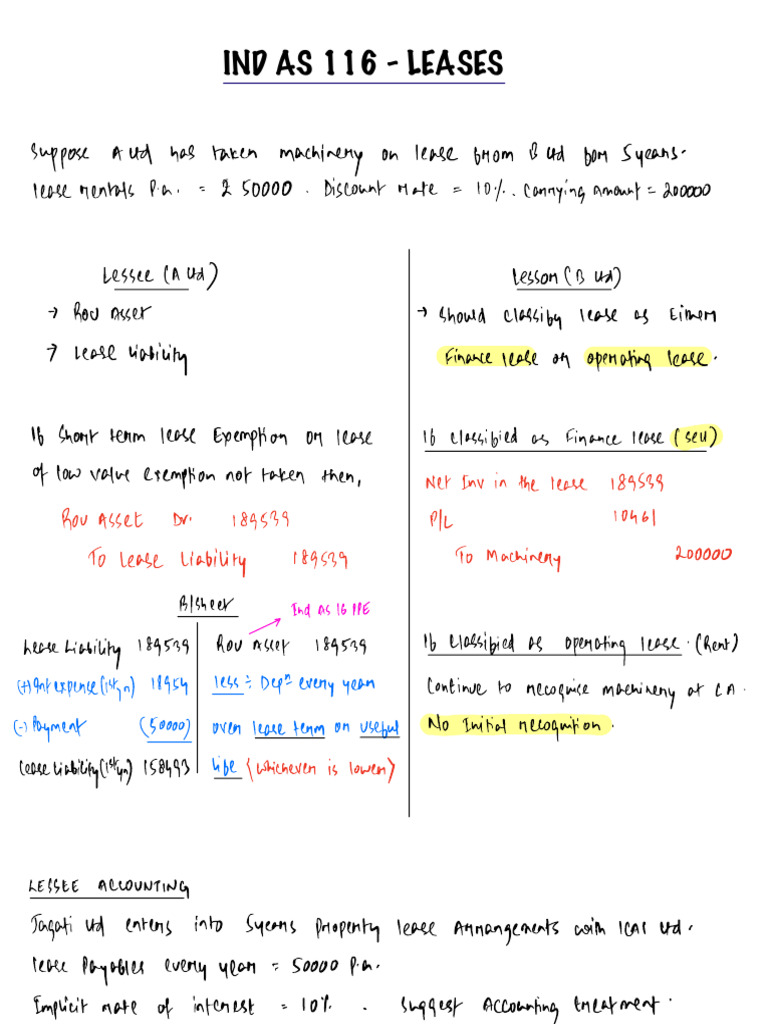 IND AS 116 - LEASES
Suppose A Ltd has taken machinery on lease from B Ltd for 5years.
lease rentals P.a. = ₹ 50000 . Discount rate = 10%. Carrying amount = 200000
Lessee (A Ltd)
→ ROU Asset
→ Lease liability
If Short term lease Exemption or lease
of low value exemption not taken then,
ROU Asset Dr. 189539
To Lease Liability 189539
B/sheet
Ind AS 16 PPE
Lease Liability 189539
(+) Int expense (1st yr) 18954
(-) Payment (50000)
Lease liability (1st yr) 158493
ROU Asset 189539
less :- Depn every year
over lease term or useful
life (whichever is lower)
Lessor (B Ltd)
→ Should classify lease as Either
Finance lease or operating lease.
If classified as Finance lease (sell)
Net Inv in the lease 189539
P/L 10461
To Machinery 200000
If classified as operating lease. (Rent)
Continue to recognise machinery at CA.
No Initial recognition.
LESSEE ACCOUNTING
Jagati Ltd enters into 5years Property lease Arrangements with ICAI Ltd.
lease Payables every year = 50000 P.a.
Implicit rate of interest = 10% . Suggest Accounting treatment.